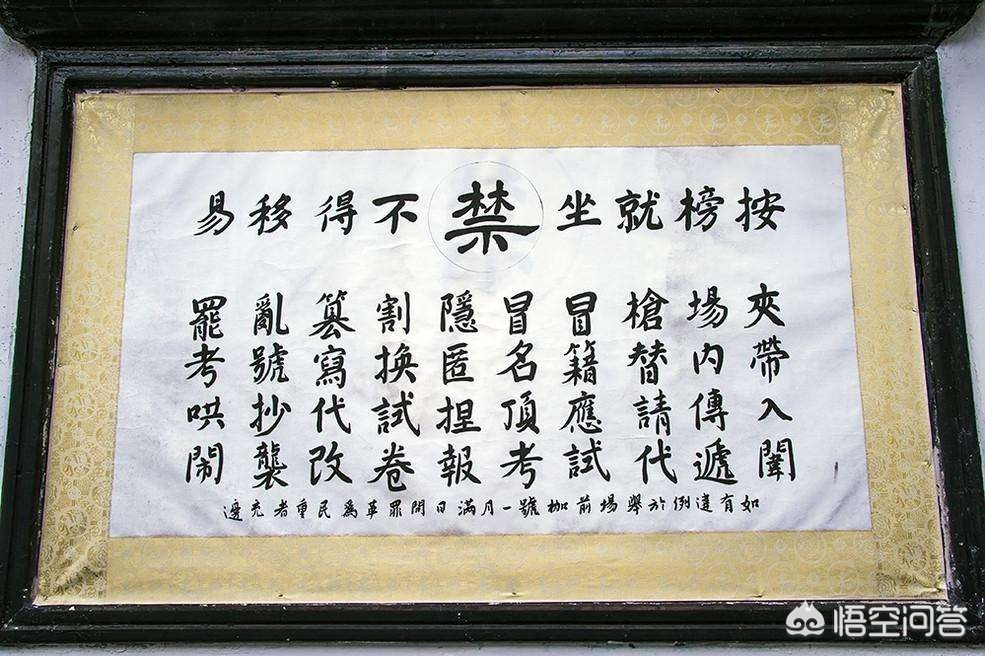 按榜就坐禁不得移易
夾帶入闈
場內傳遞
槍替請代
冒籍應試
冒名頂考
隱匿捏報
割換試卷
篡寫代改
亂號抄襲
罷考哄鬧
如有違例於舉場前枷號一月滿日問罪革爲民重者充邊
悟空问答